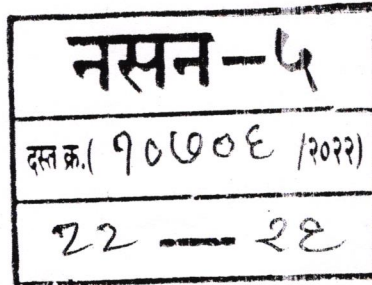 नसन-५
दस्त क्र.( १०७०६ /२०२२)
२२ — २६